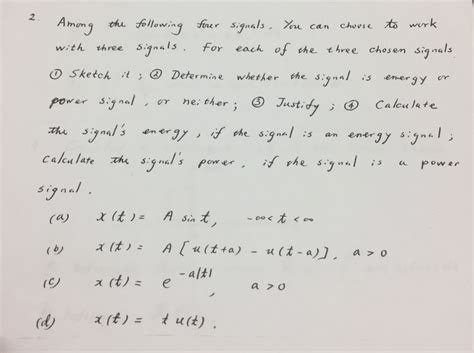 2. Among the following four signals. You can choose to work
with three signals. For each of the three chosen signals
① Sketch it ; ② Determine whether the signal is energy or
power signal, or neither ; ③ Justify ; ④ Calculate
the signal's energy, if the signal is an energy signal ;
calculate the signal's power, if the signal is a power
signal.
(a) x(t) = A sin t, -∞ < t < ∞
(b) x(t) = A [u(t+a) - u(t-a)], a > 0
(c) x(t) = e^{-a|t|}, a > 0
(d) x(t) = t u(t).